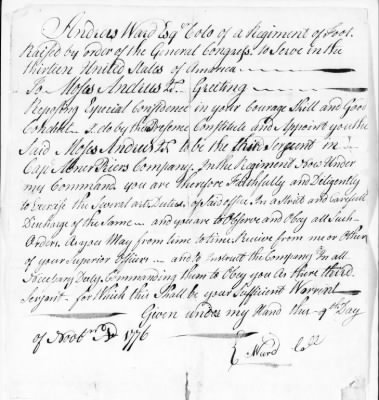 Andrew Ward Esqr Colo of a Regiment of Foot
Raised by order of the General Congress to Serve in the
thirteen United States of America
To Moses Andrus Greeting
Reposing Especial Confidence in your Courage Skill and Good
Conduct I do by these Presence Constitute and Appoint you the
Said Moses Andrus to be the third Serjeant in
Cap Abner Company In the Regiment Now Under
my Command you are therefore Faithfully and Diligently
to Exersise the Several acts Duties of said office In a Strict and Carefull
Discharge of the Same and you are to Observe and Obey all Such
Orders As you May from time to time Receive from me or Other
of your Superior officers and to Instruct the Company In all
Necessary Duty Commanding them to Obey you As there third
Serjant for Which this Shall be your Sufficient Warrent
Given under my Hand this 9th Day
of Novbr AD 1776
Ward Coll